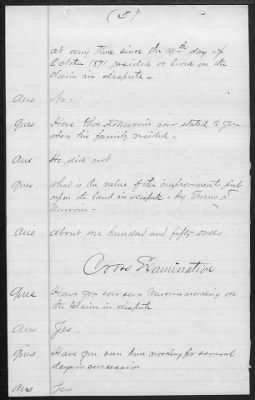 (5)
at any time since the 19th day of
October 1871 resided or lived on the
Claim in dispute.
Ans No.
Ques Has Thos D. ever stated to you
when his family resided.
Ans He did not
Ques What is the value of the improvements put
upon the land in dispute by Thomas D.
Ans About one hundred and fifty dolls
Cross Examination
Ques Have you ever seen working on
the Claim in dispute
Ans Yes.
Ques Have you seen him working for several
days in succession
Ans Yes